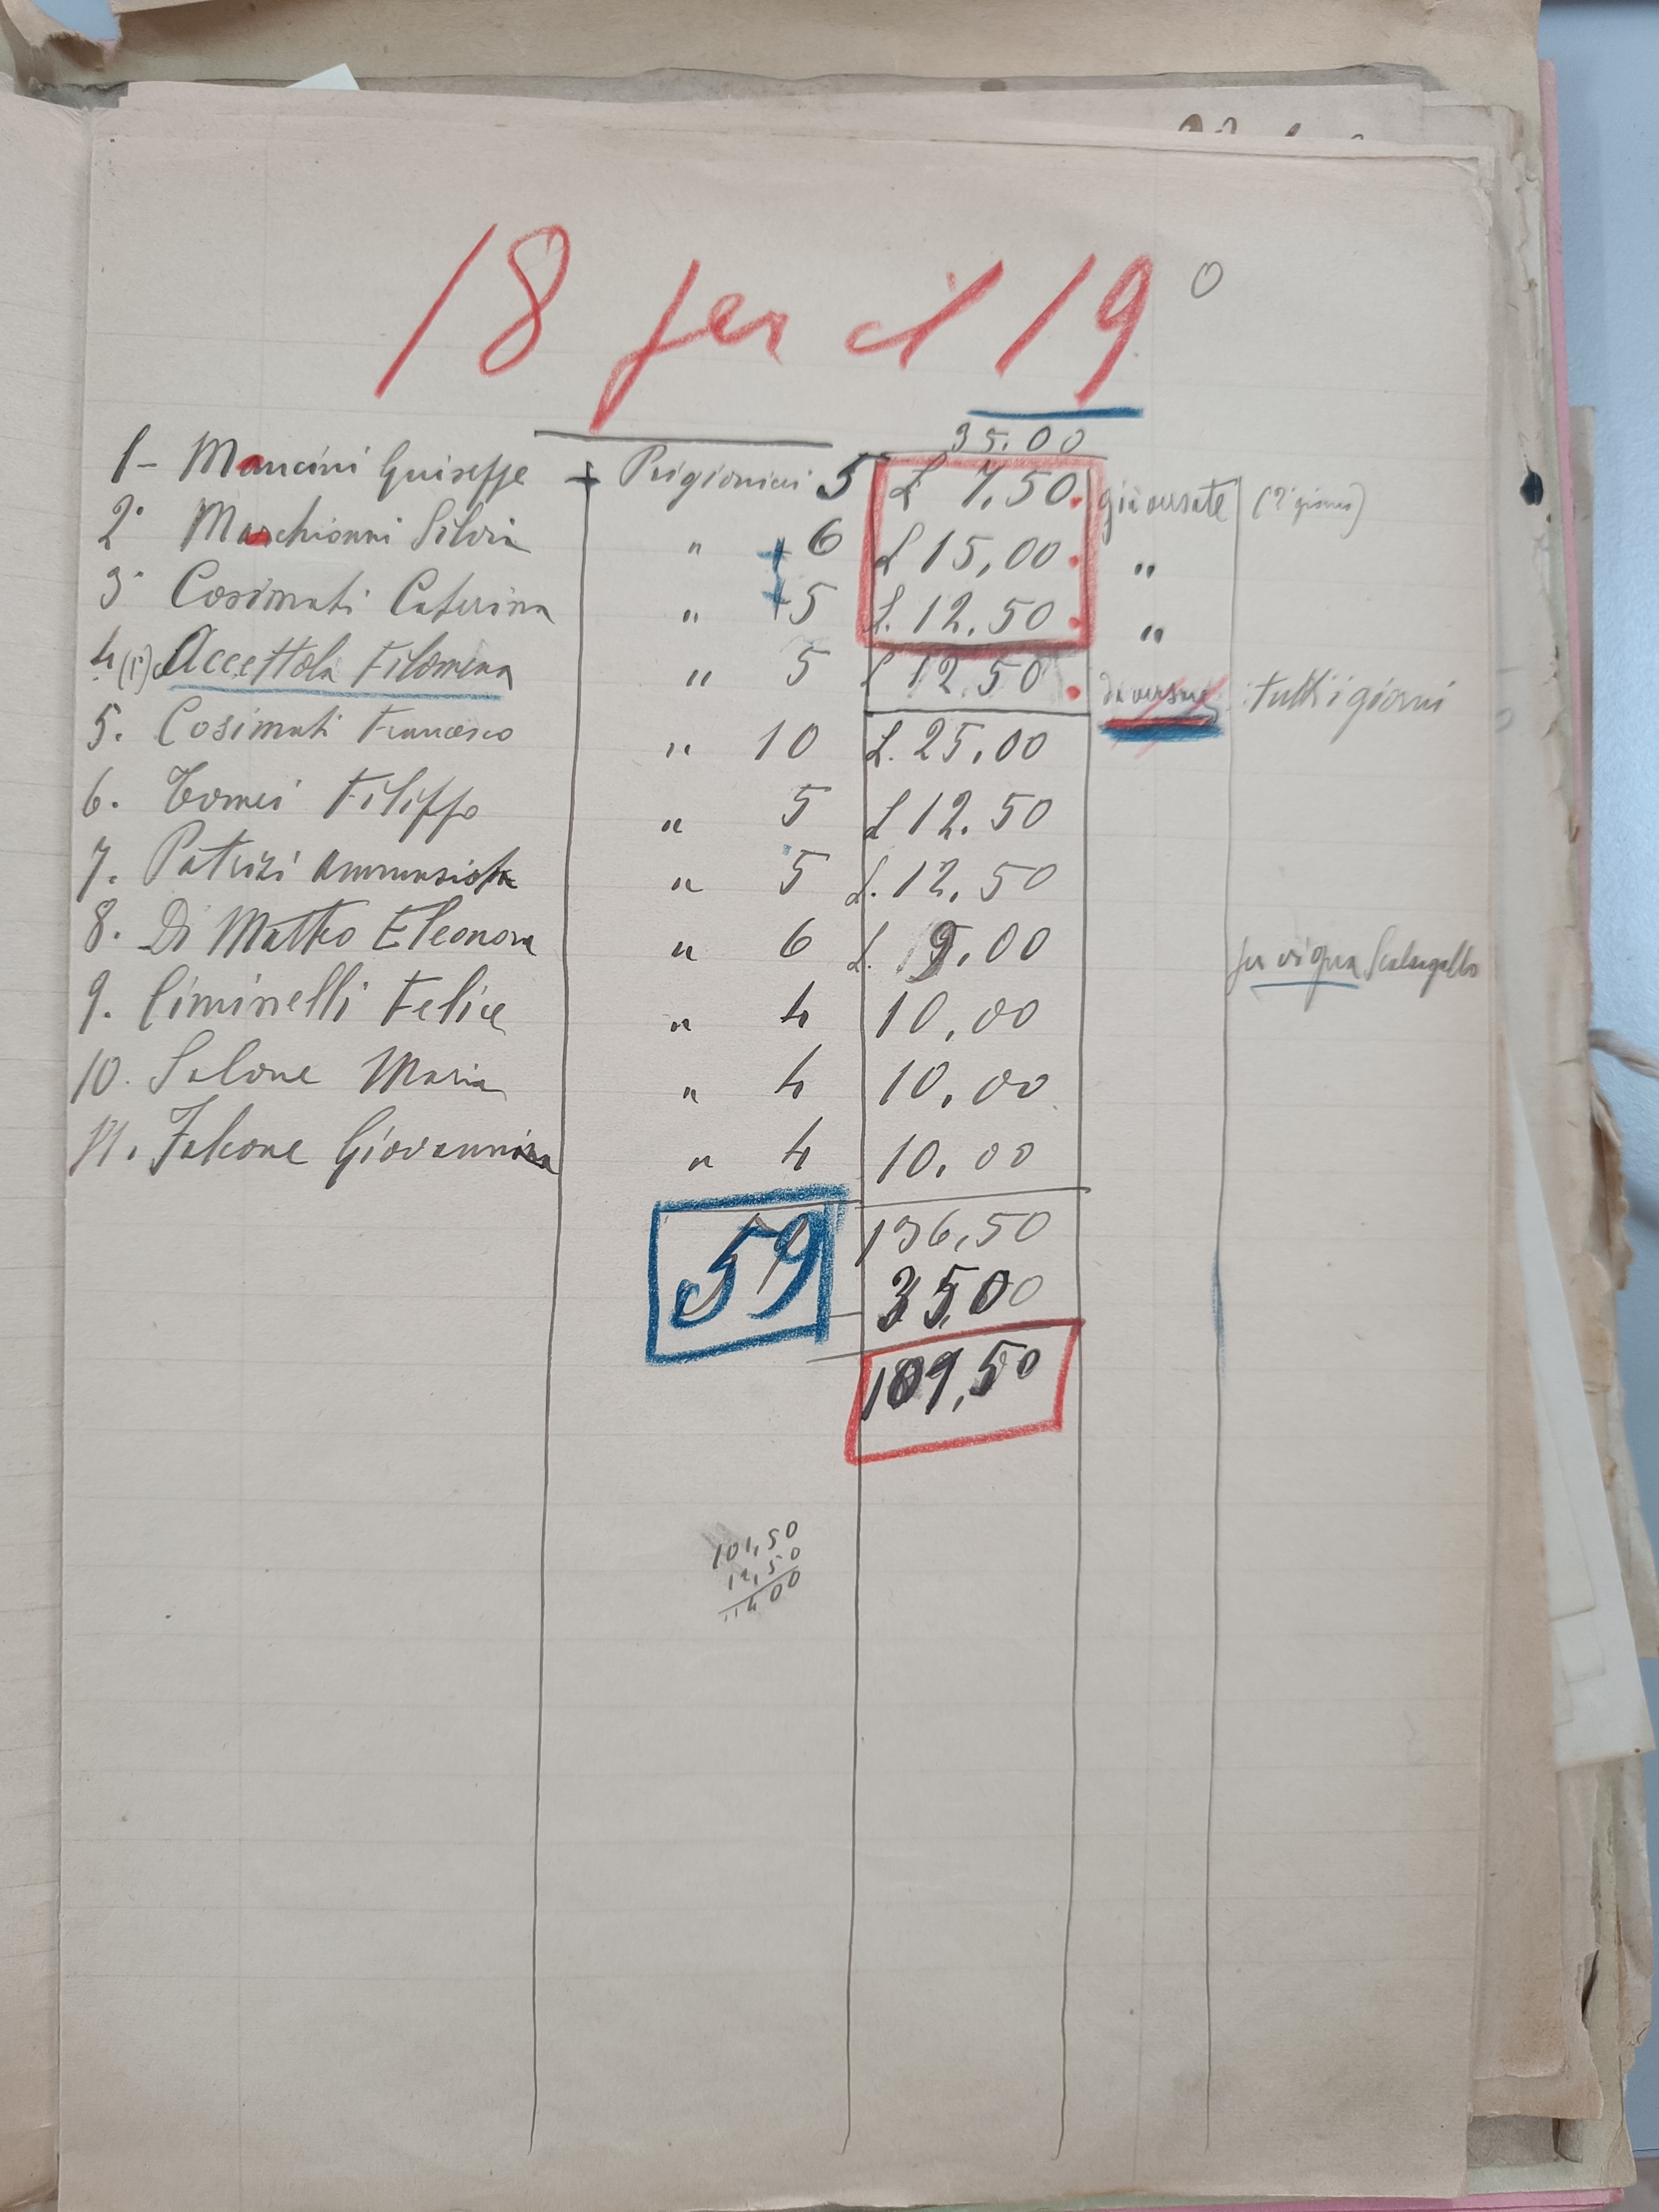 18 per il 19°
35.00
1- Mancini Guiseppe + Prigionieri 5 £ 7,50. già versate (2 giorni)
2° Marchionni Silvia " + 6 £ 15,00. "
3° Cosimati Caterina " + 5 £. 12.50. "
4 (5) Accettola Filomena " 5 £ 12.50. da versare tutti i giorni
5. Cosimati Francesco " 10 £. 25,00
6. Tomei Filippo " 5 £ 12.50
7. Patrizi Annunziata " 5 £. 12,50
8. Di Matteo Eleonora " 6 £. 9,00 per vigna
9. Ciminelli Felice " 4 10,00
10. Salone Maria " 4 10,00
11. Falcone Giovannina " 4 10,00
59 136,50
35,00
101,50
101,50
12,50
11400